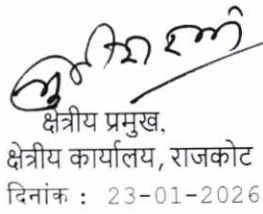 क्षेत्रीय प्रमुख,
क्षेत्रीय कार्यालय, राजकोट
दिनांक : 23-01-2026